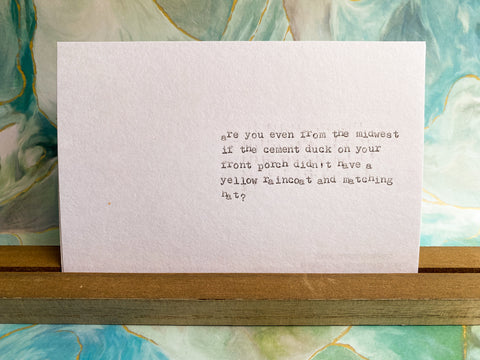 are you even from the midwest
if the cement duck on your
front porch didn't have a
yellow raincoat and matching
hat?